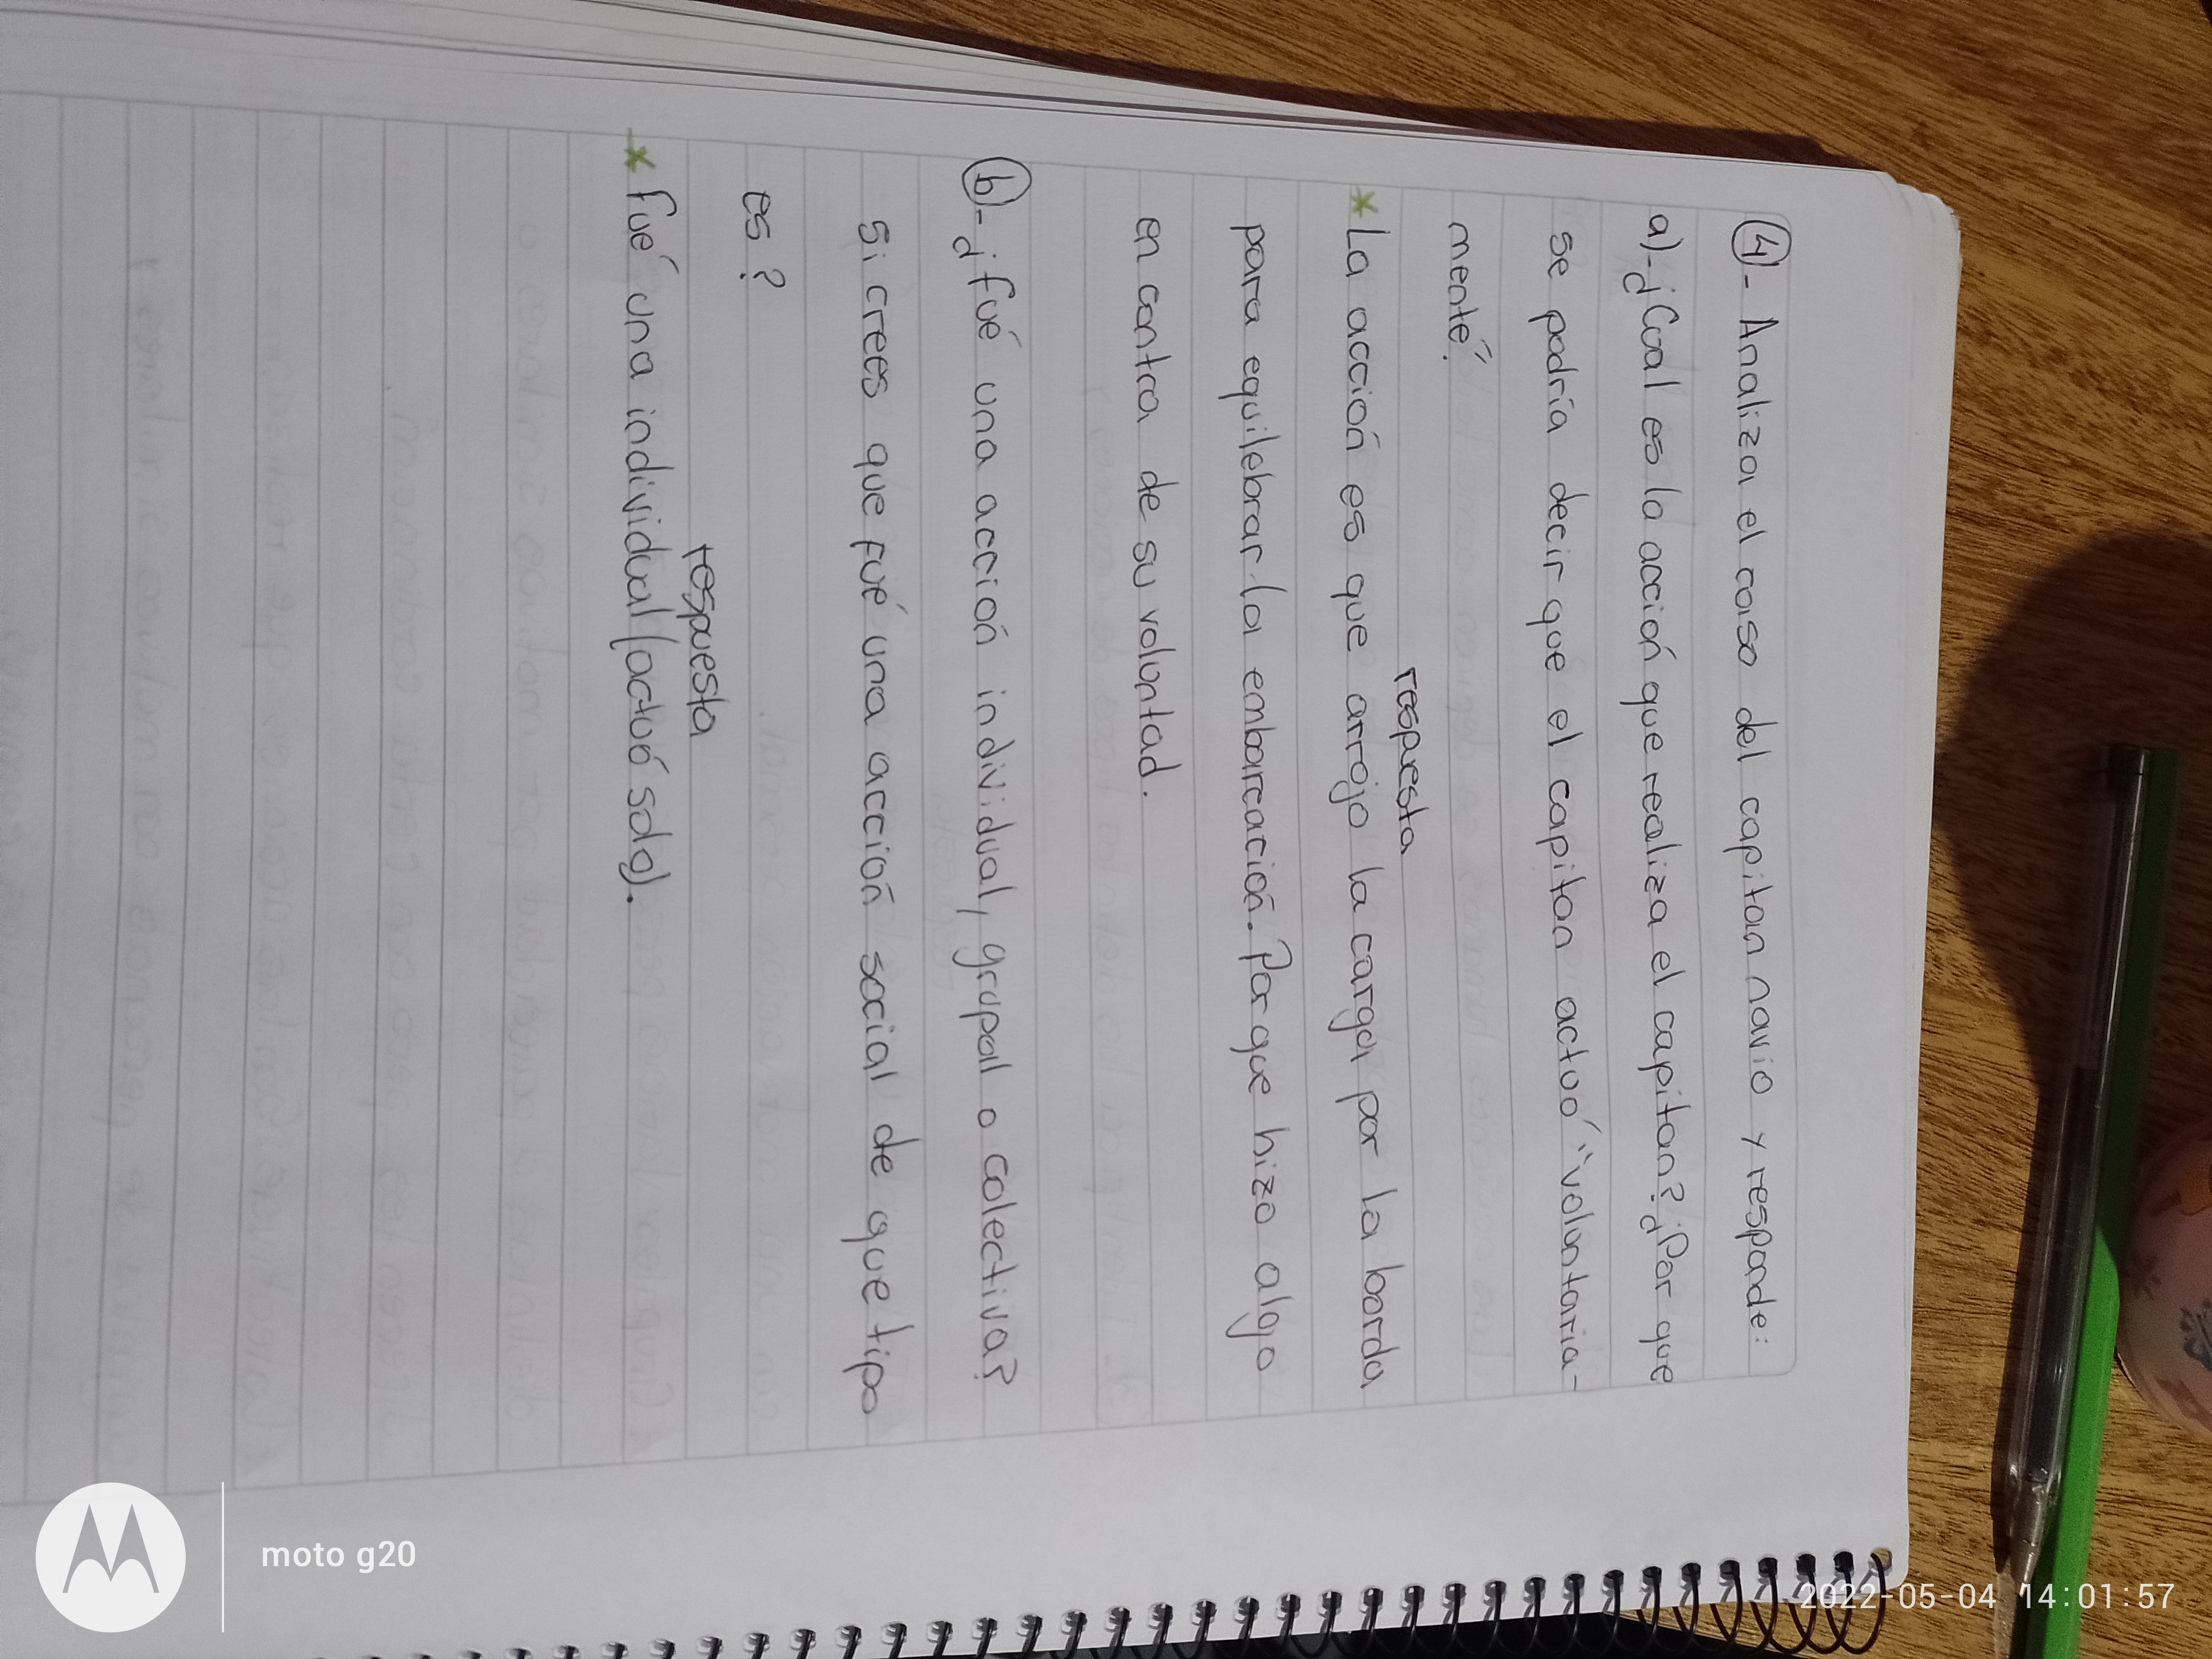 4)- Analiza el caso del capitan navio y responde:
a)-¿Cual es la acción que realiza el capitan? ¿Por que
se podría decir que el capitan actuó "voluntaria-
mente"?
respuesta
* La acción es que arrojo la carga por la borda
para equilebrar la embarcación. Por que hizo algo
en contra de su voluntad.
b)-¿fué una acción individual, grupal o colectiva?
Si crees que fué una acción social de que tipo
es?
respuesta
* fué una individual (actuó solo).
moto g20
2022-05-04 14:01:57